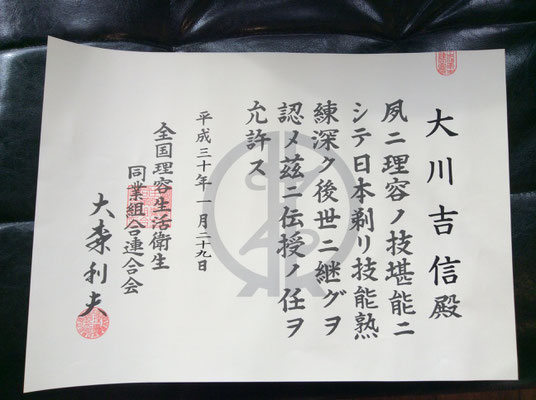 大川吉信殿
夙ニ理容ノ技堪能ニ
シテ日本剃リ技能熟
練深ク後世ニ継グヲ
認メ茲ニ伝授ノ任ヲ
允許ス
平成三十年一月二十九日
全国理容生活衛生
同業組合連合会
大森利夫